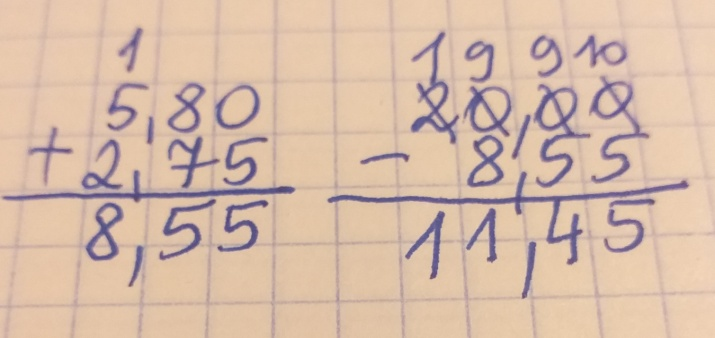 1
5,80
+ 2,75
8,55
1 9 9 10
20,00
- 8,55
11,45